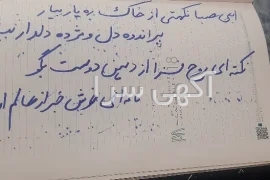 ای صبا نکهتی از خاک ره یار بیار
ببر اندوه دل و مژده دلدار
نکته ای روح فزا از دهن دوست بگو
نامه ای خوش خبر از عالم
آگهی سرا